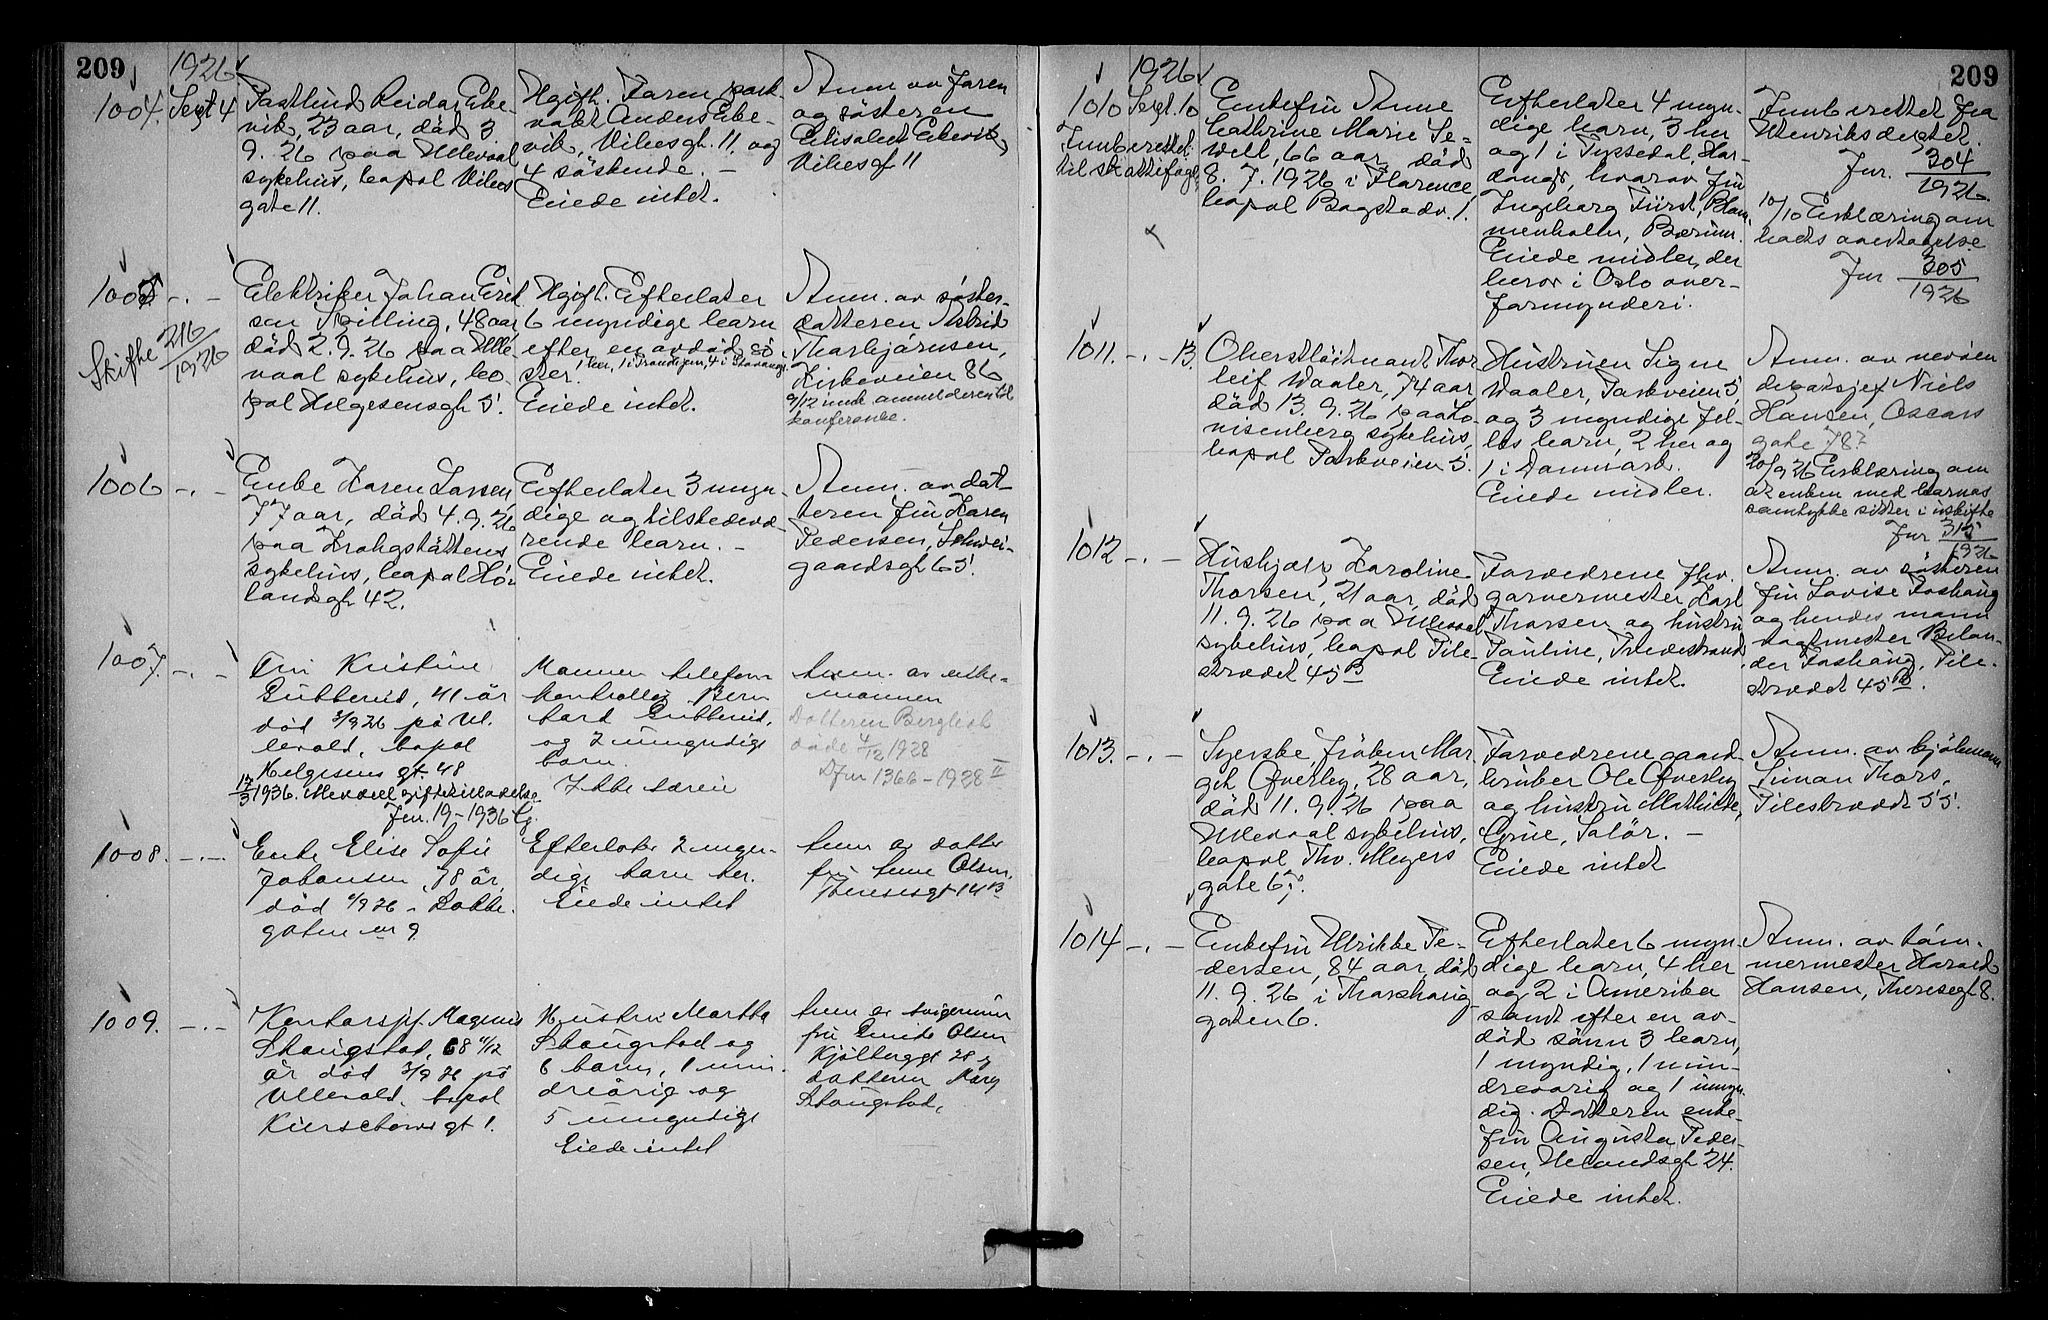 209
1926
1004. Sept 4
Postbud Reidar Eke-
vik, 23 aar, död 3
9. 26 paa Ullevaal
sykehus, bopal Vibes
gate 11.
Ugift. Faren park-
vakt Anders Eke-
vik, Vibesgt. 11. og
4 söskende. -
Eiede intet.
Anm. av faren
og søsteren
Elisabeth Ekevik,
Vibesgt 11
1005 -.-
Skifte 216
1926
Elektriker Johan Erik
sen Spilling, 48 aar
död 2. 9. 26 paa Ulle-
vaal sykehus, bo-
pal Helgesensgt 5.
Ugift. Efterlater
6 myndige barn
efter en avdød sö-
ster.
Eiede intet.
Anm. av søster-
datteren Astrid
Thorbjörnsen,
Kirkeveien 86
9/12 innk. anmelderen til
konferanse.
1006 -.-
Enke Karen Larsen,
77 aar, död 4. 9. 26
paa Krohgstøttens
sykehus, bopal Hö-
landsgt 42.
Efterlater 3 myn-
dige og tilstedevæ-
rende barn. -
Eiede intet.
Anm. av dat
teren fru Karen
Pedersen, Schwei-
gaardsgt 65.
1007. -.-
Fru Kristine
Gubberud, 41 år
död 3/9 26 på Ul-
levold, bopal
Helgesens gt. 48
17/3 1936. Meddelt giftetilladelse
Jnr. 19-1936
Mannen telefon-
kontrollør Bern
hard Gubberud,
og 2 umyndige
barn.
Ikke særeie
Anm. av enke-
mannen
Datteren Bergliot
døde 4/12 1928
Djnr 1366-1928 II
1008. -.-
Enke Elise Sofie
Johansen, 78 år,
död 4/9 26 - Bakke-
gaten nr 9
Efterlater 2 myn-
dige barn her.
Eiede intet
Anm av datter
fru Anne Olsen,
Theresesgt 14 B
1009. -.-
Kontorsjef Magnus
Skaugstad, 68 4/12
år död 3/9 26 på
Ullevold, bopal
Kierschows gt 1.
Hustru Marthe
Skaugstad og
6 barn, 1 min-
dreårig og
5 umyndige
Eiede intet
Anm av svigerinnen
fru Olsen
Kjölberggt 28 og
datteren Mary
Skaugstad.
209
1926
1010 Sept. 10
Innberettet
til skattefogd
Enkefru Anne
Kathrine Marie Se-
well, 66 aar, död
8. 7. 1926 i Florence,
bopal Bogstadv. 1.
Efterlater 4 myn-
dige barn, 3 her
og 1 i Tyssedal, Har-
danger, hvorav fru
Ingeborg Fürst, Blom-
menholm, Bærum.
Eiede midler, der
beror i Oslo over-
formynderi.
Innberettet fra
Utenriksdeptet.
Jnr. 304
1926
10/10 Erklæring om
boets overtagelse
Jnr 305
1926
1011. -.- 13.
Oberstløitnant Thor
leif Waaler, 74 aar
död 13. 9. 26 paa Lo-
visenberg sykehus,
bopal Parkveien 5.
Hustruen Signe
Waaler, Parkveien 5,
og 3 myndige fel-
les barn, 2 her og
1 i Danmark.
Eiede midler.
Anm. av nevøen
depotsjef Niels
Hansen, Oscars
gate 78
20/9 26 Erklæring om
at enken med barnas
samtykke sitter i uskifte
Jnr 315
1926
1012 -.-
Hushjælp Karoline
Thorsen, 21 aar, död
11. 9. 26 paa Ullevaal
sykehus, bopal Pile-
strædet 45 B
Forældrene fhv.
garvermester Karl
Thorsen og hustru
Pauline, Tvedestrand.
Eiede intet.
Anm. av søsteren
fru Lovise Foshaug
og hendes mann
vagtmester
Foshaug, Pile-
strædet 45 B.
1013. -.-
Syerske, frøken Mar-
git Qverley, 28 aar,
död 11. 9. 26 paa
Ullevaal sykehus,
bopal Thv. Meyers
gate 65.
Forældrene gaard-
bruker Ole Qverley
og hustru Mathilde,
Grue, Solör. -
Eiede intet
Anm. av kjøbmann
Simon Thors,
Pilestrædet 55.
1014 -.-
Enkefru Ulrikke Pe-
dersen, 84 aar, död
11. 9. 26 i Thorshaug
gaten 6.
Efterlater 6 myn-
dige barn, 4 her
og 2 i Amerika
samt efter en av-
död sönn 3 barn,
1 myndig, 1 min-
dreaarig og 1 umyn-
dig. Datteren enke-
fru Augusta Peder-
sen, Uelandsgt 24.
Eiede intet.
Anm. av töm-
mermester Harald
Hansen, Theresegt 8.